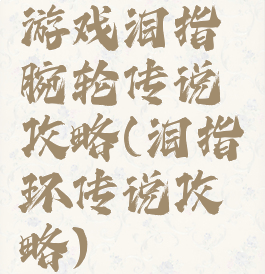 游戏泪指
腕轮传说
攻略(泪指
环传说攻
略)